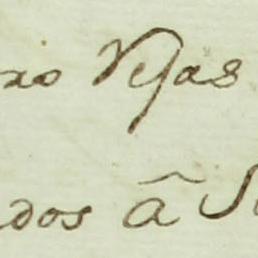 xo Vejas
dos â